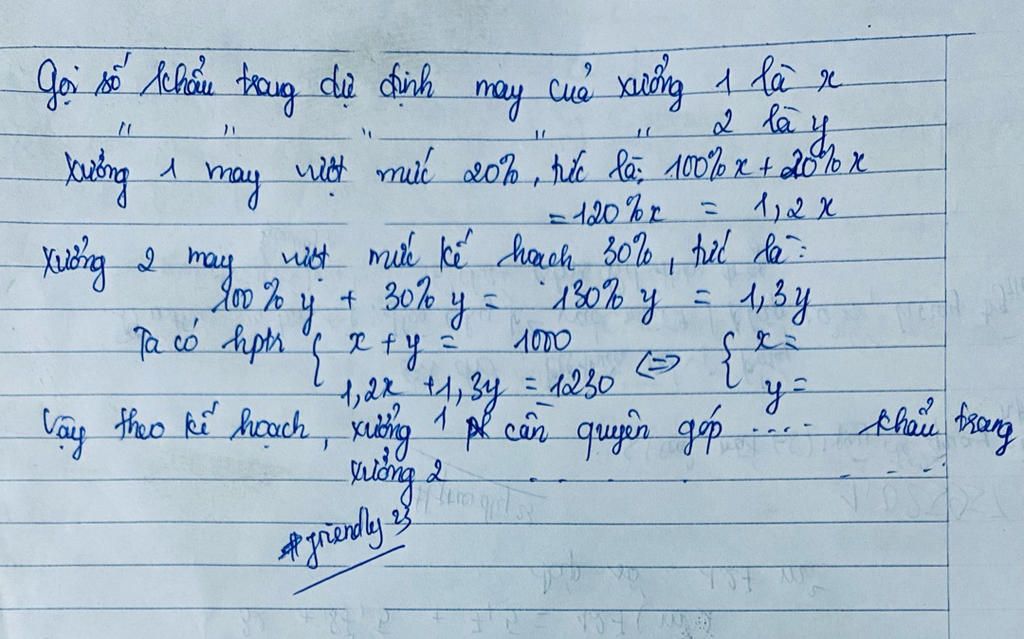 Gọi số khẩu trang dự định may của xưởng 1 là x
" " " " " 2 là y
Xưởng 1 may vượt mức 20%, tức là: 100% x + 20% x
= 120% x = 1,2 x
Xưởng 2 may vượt mức kế hoạch 30%, tức là:
100% y + 30% y = 130% y = 1,3y
Ta có hptr { x + y = 1000 <=> { x =
1,2x + 1,3y = 1230 y =
Vậy theo kế hoạch, xưởng 1 cần quyên góp .... khẩu trang
xưởng 2 . . . . . . .
#friendly 23